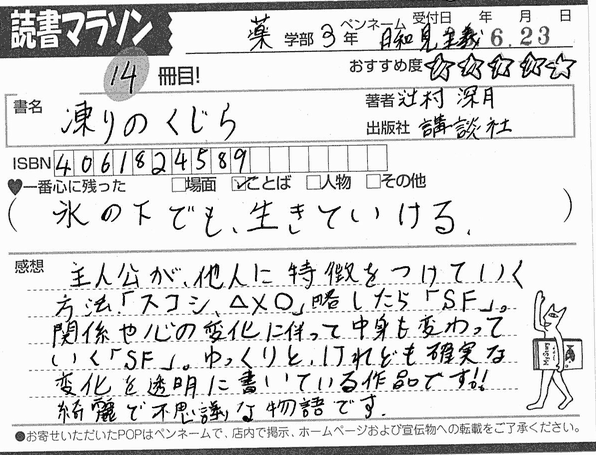 読書マラソン
薬 学部 3 年 ペンネーム 日和見主義 受付日 年 月 日 6.23
14 冊目!
おすすめ度 ☆☆☆☆☆
書名 凍りのくじら
著者 辻村 深月
出版社 講談社
ISBN 4061824589
♥一番心に残った □場面 ☑ことば □人物 □その他
(氷の下でも、生きていける。)
感想
主人公が、他人に特徴をつけていく
方法、「スコシ、△×○」略したら「SF」。
関係や心の変化に伴って中身も変わって
いく「SF」。ゆっくりと、けれども確実な
変化を透明に書いている作品です!!
綺麗で不思議な物語です.
●お寄せいただいたPOPはペンネームで、店内で掲示、ホームページおよび宣伝物への転載をご了承ください。